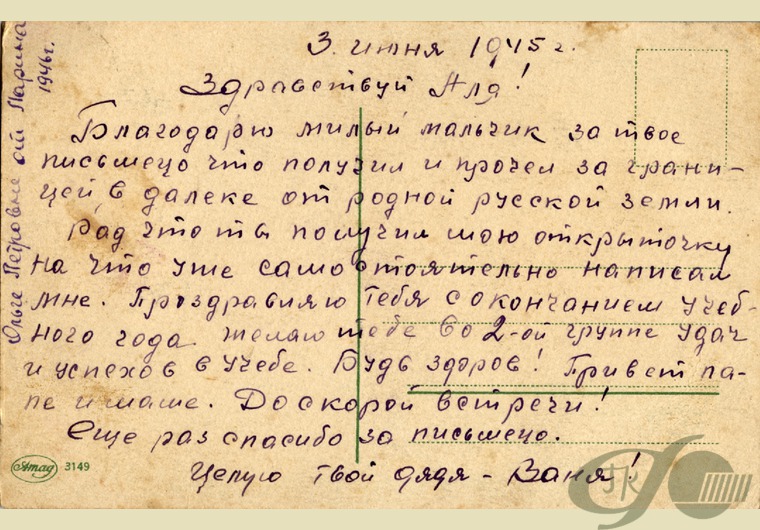 3. июня 1945 г.
Здравствуй Аля!
Благодарю милый мальчик за твое
письмецо что получил и прочел за грани-
цей, в далеке от родной русской земли.
Рад что ты получил мою открыточку
на что уже самостоятельно написал
мне. Проздравляю тебя с окончанием учеб-
ного года. Желаю тебе во 2-ой группе удач
и успехов в учебе. Будь здоров! Привет па-
пе и маме. До скорой встречи!
Еще раз спасибо за письмецо.
Целую твой дядя - Ваня!
Ольге Петровне от Марина
1946г.
Amag 3149